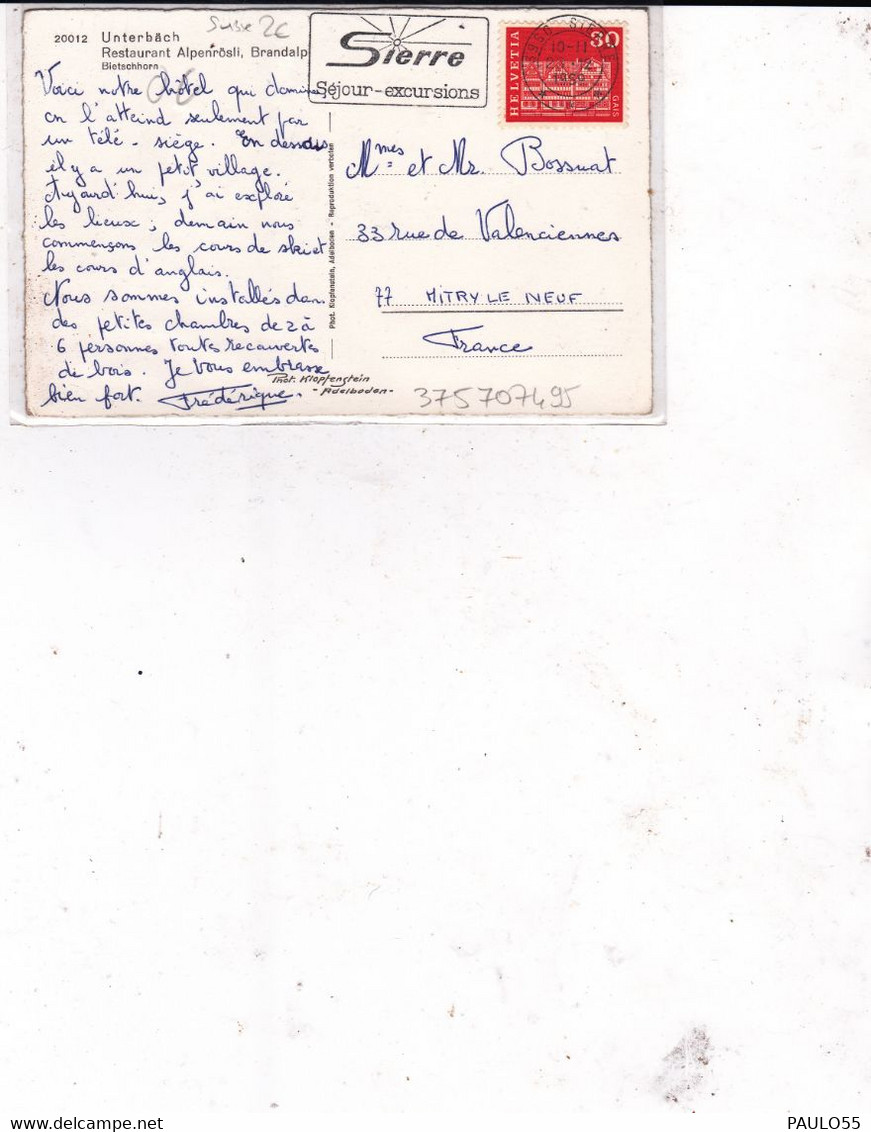 Suisse 2€
20012 Unterbäch
Restaurant Alpenrösli, Brandalp
Bietschhorn
Sierre
Séjour-excursions
HELVETIA
30
GAIS
10-11
1969
Voici notre hôtel qui domine,
on l'atteind seulement par
un télé-siège. En dessous
il y a un petit village.
Aujourd'hui, j'ai exploré
les lieux; demain nous
commençons les cours de ski et
les cours d'anglais.
Nous sommes installés dans
des petites chambres de 2 à
6 personnes toutes recouvertes
de bois. Je vous embrasse
bien fort. Frédérique.
Phot. Klopfenstein, Adelboden - Reproduktion verboten
Mmes et Mr. Bossuat
33 rue de Valenciennes
77 MITRY LE NEUF
France
Phot. Klopfenstein
- Adelboden -
375707495
Delcampe.net
PAULO55